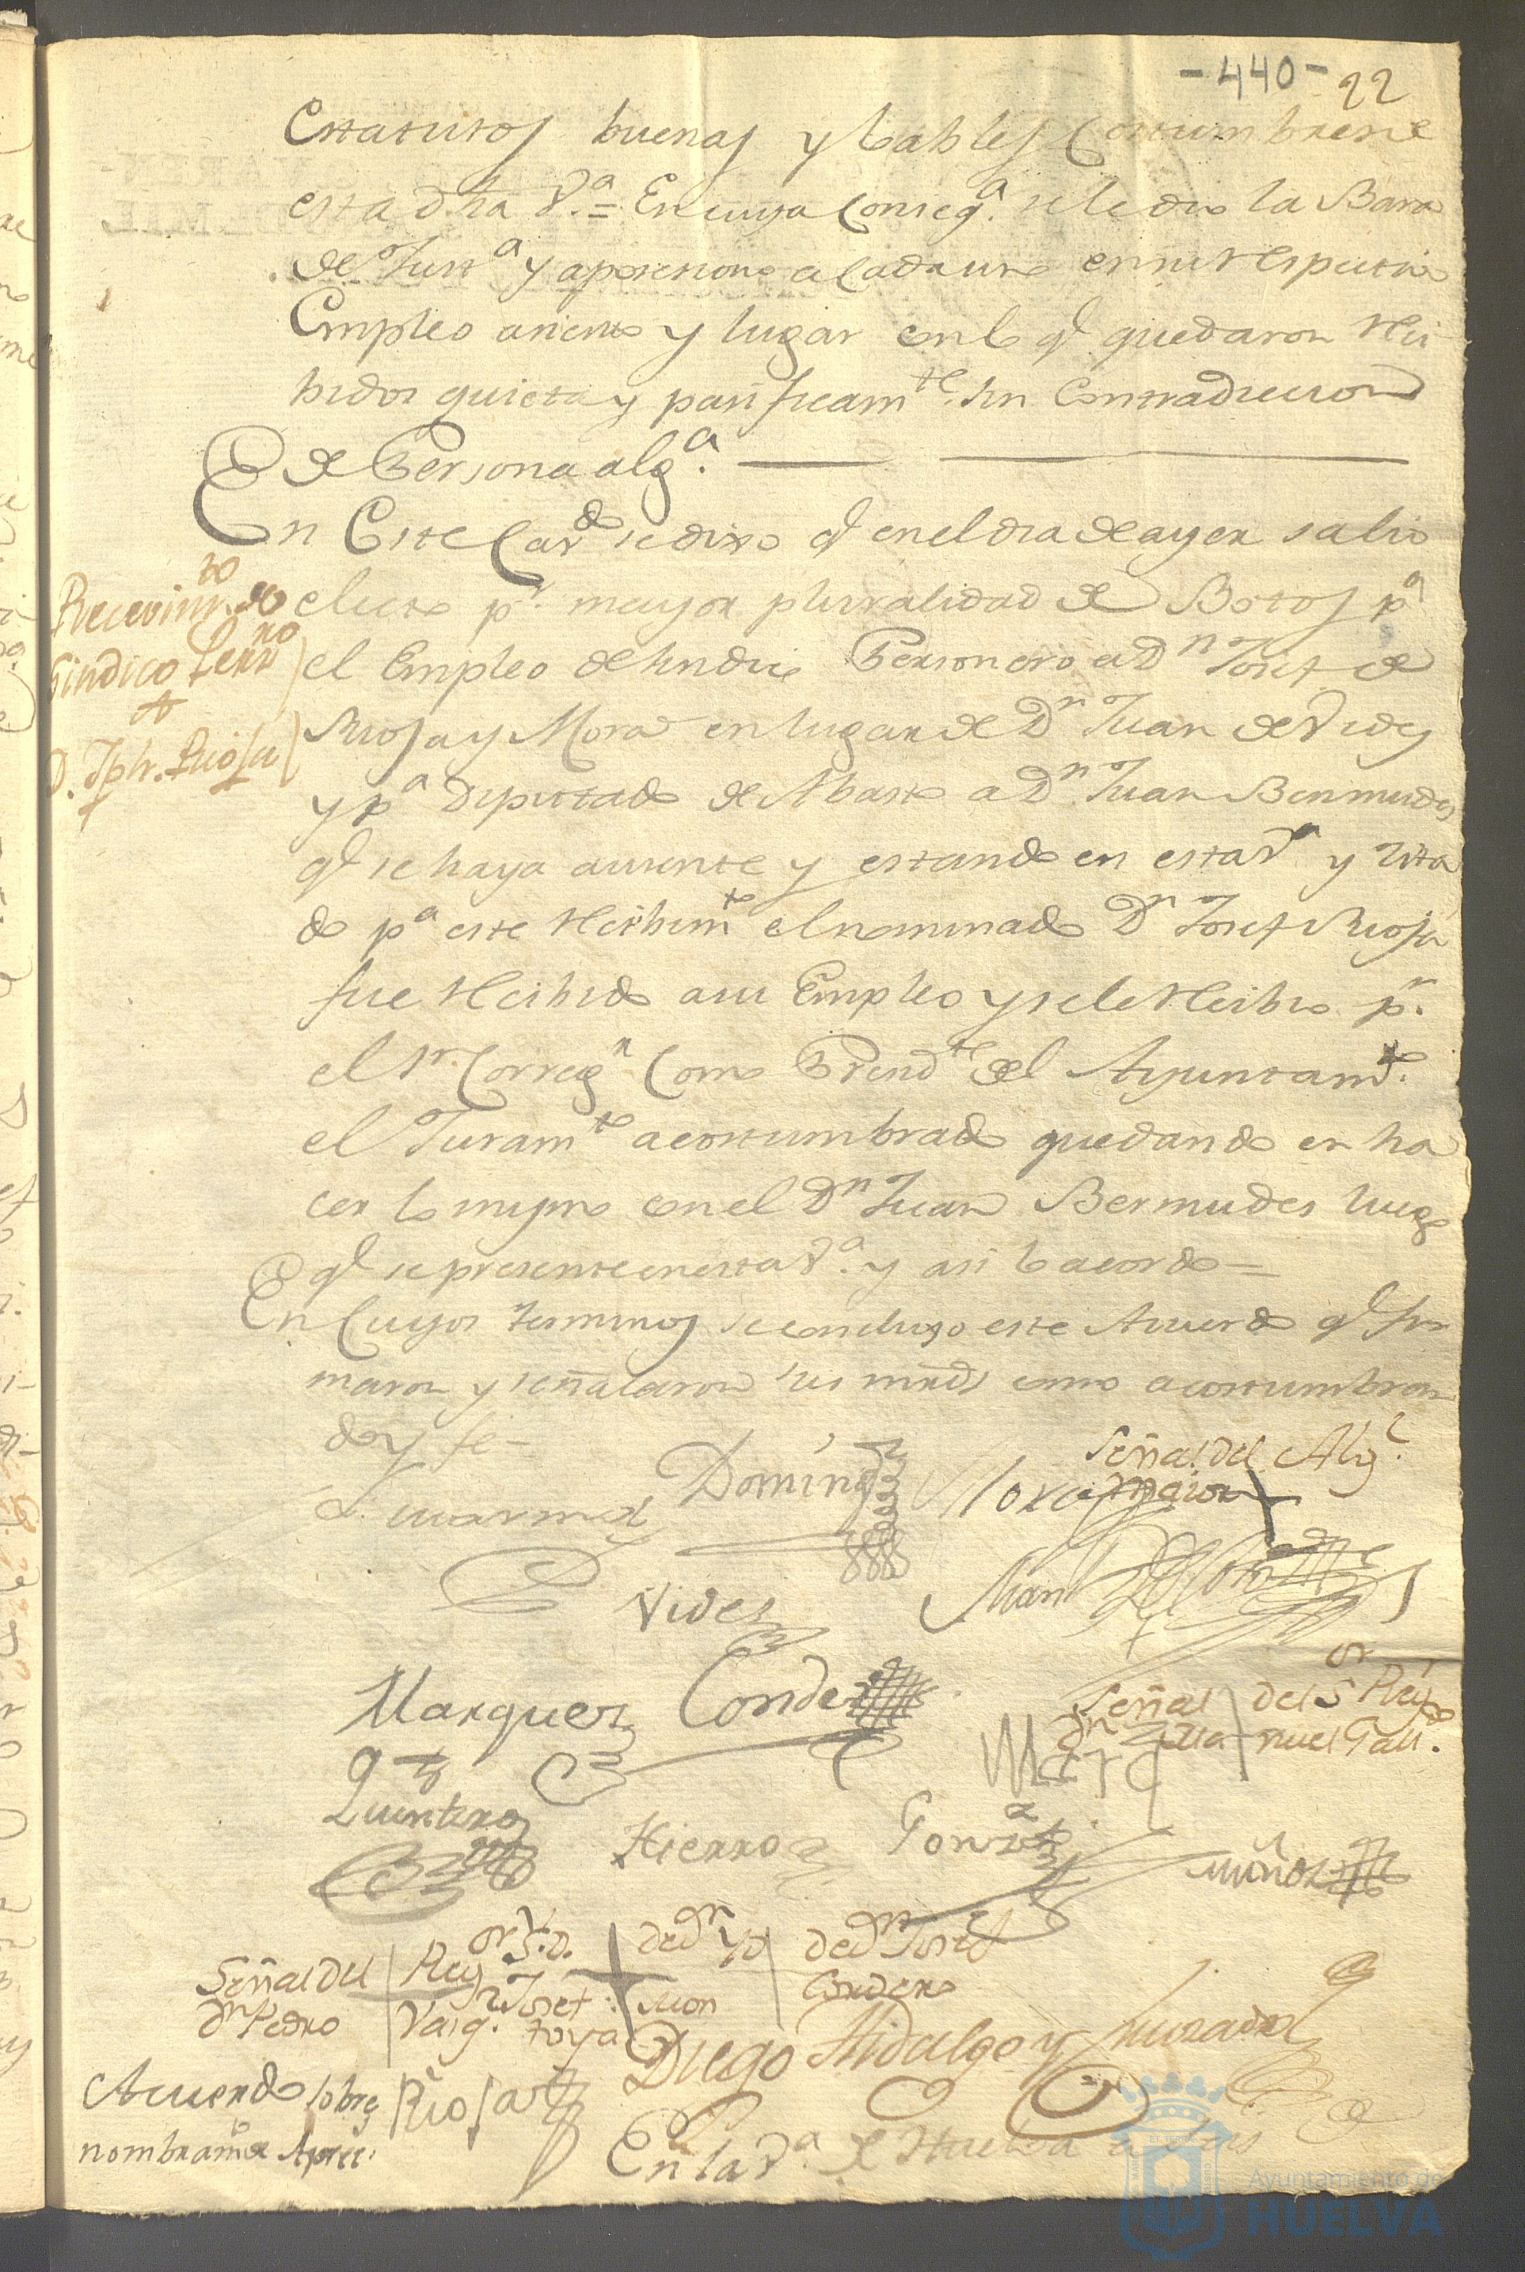 -440- 22
Estatutos buenas y loables Costumbres de
esta dha V.ª = En cuya Conseq.ª se le dio la Bara
de Just.ª y aposesiono a Cada uno en su respectivo
Empleo asiento y lugar en lo q.e quedaron reci-
bidos quieta y pasificam.te sin Contradiccion
de Persona alg.ª
En Este Cav.do se dixo q.e en el dia de ayer salio
electo p.r mayor pluralidad de Botos p.ª
el Empleo de Sindico Personero a D.n Josef de
Rioja y Mora en lugar de D.n Juan de Vides
y p.ª Diputado de Abasto a D.n Juan Bermudes
q.e se haya ausente y estando en esta V.ª y cita
do p.ª este recibim.to el nominado D.n Josef Rioja
fue recibido a su Empleo y se le recibio p.r
el S.r Correg.r Como Presid.te del Ayuntam.to
el Juram.to acostumbrado quedando en ha
cer lo mismo con el D.n Juan Bermudes luego
q.e se presente en esta V.ª y asi lo acordo =
En Cuyos terminos se concluyo este Acuerdo q.e fir
maron y señalaron sus mrds como acostumbran
doy fe -
Recevim.to de
Sindico Perso
no
A
D. Jph. Rioja
Doming
Mora
Señal del Alg.l
Maior
Vides
Man
Marquez
Conde
Señal del S.or Rej.or
D.n Manuel Gall.
Mora
Quintero
Hierro
Gonz.z
Muñoz
Señal del Rej.or S. D.
D.n Pedro
de D.n
de D.n Josef
Cordero
Rioja
Diego Hidalgo y Hurtado
Acuerdo sobre
nombram.to de Aprec.
En la V.ª de Huelva a
EL TERRAE
Ayuntamiento de
HUELVA